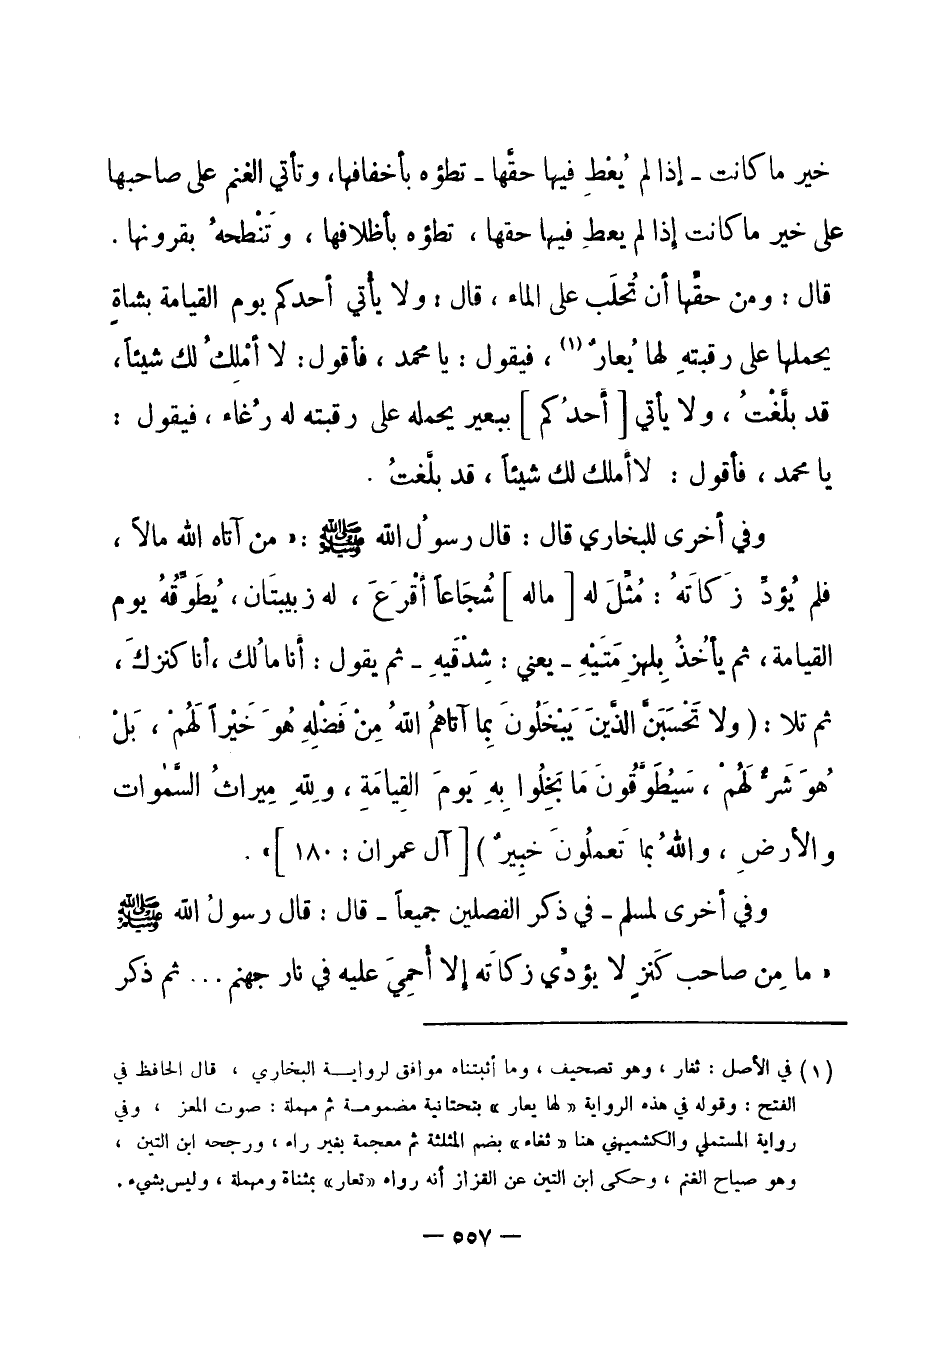 خير ما كانت ـ إذا لم يُعْطِ فيها حقَّها ـ تطؤه بأخفافها، وتأتي الغنم على صاحبها
على خير ما كانت إذا لم يعطِ فيها حقها ، تطؤه بأظلافها ، وتَنْطحهُ بقرونها .
قال : ومن حقِّها أن تُحلَب على الماء ، قال : ولا يأْتي أحدكم يوم القيامة بشاةٍ
يحملها على رقبتهِ لها يُعارٌ (١) ، فيقول : يا محمد ، فأقول : لا أمْلِكُ لك شيئاً ،
قد بلَّغْتُ ، ولا يأتي [ أحدُكم ] ببعير يحمله على رقبته له رُغاء ، فيقول :
يا محمد ، فأقول : لا أملك لك شيئاً ، قد بلَّغتُ .
وفي أخرى للبخاري قال : قال رسولُ الله ﷺ : « من آتاه الله مالاً ،
فلم يُؤدِّ زَكاتَهُ : مُثِّلَ له [ ماله ] شُجَاعاً أقْرَعَ ، له زبيبتَان ، يُطَوَّقُهُ يوم
القيامة ، ثم يأخُذُ بِلهزِمَتَيْهِ ـ يعني : شِدْقَيهِ ـ ثم يقول : أنا مالُك ، أنا كنزكَ ،
ثم تلا : ( ولا تَحْسَبَنَّ الذَّينَ يَبْخَلُونَ بِما آتاهمُ اللهُ مِنْ فَضْلِهِ هُوَ خَيْراً لَهُمْ ، بَلْ
هُوَ شَرٌّ لَهُمْ ، سَيُطَوَّقُونَ مَا بَخِلُوا بِهِ يَومَ القِيامَةِ ، وللهِ مِيراثُ السَّمٰوات
والأرضِ ، واللهُ بما تَعملُونَ خبِيرٌ ) [ آل عمران : ١٨٠ ] » .
وفي أخرى لمسلم ـ في ذكر الفصلين جميعاً ـ قال : قال رسولُ الله ﷺ
« ما مِن صاحب كَنزٍ لا يؤدِّي زكاتَه إلا أُحمِيَ عليه في نار جهنم ... ثم ذكر
(١) في الأصل : ثغار ، وهو تصحيف ، وما أثبتناه موافق لروايــة البخاري ، قال الحافظ في
الفتح : وقوله في هذه الرواية « لها يعار » بتحتانية مضمومـة ثم مهملة : صوت المعز ، وفي
رواية المستملي والكشميهني هنا « ثغاء » بضم المثلثة ثم معجمة بغير راء ، ورجحه ابن التين ،
وهو صياح الغنم ، وحكى ابن التين عن القزاز أنه رواه « تعار » بمثناة ومهملة ، وليس بشيء .
— ٥٥٧ —